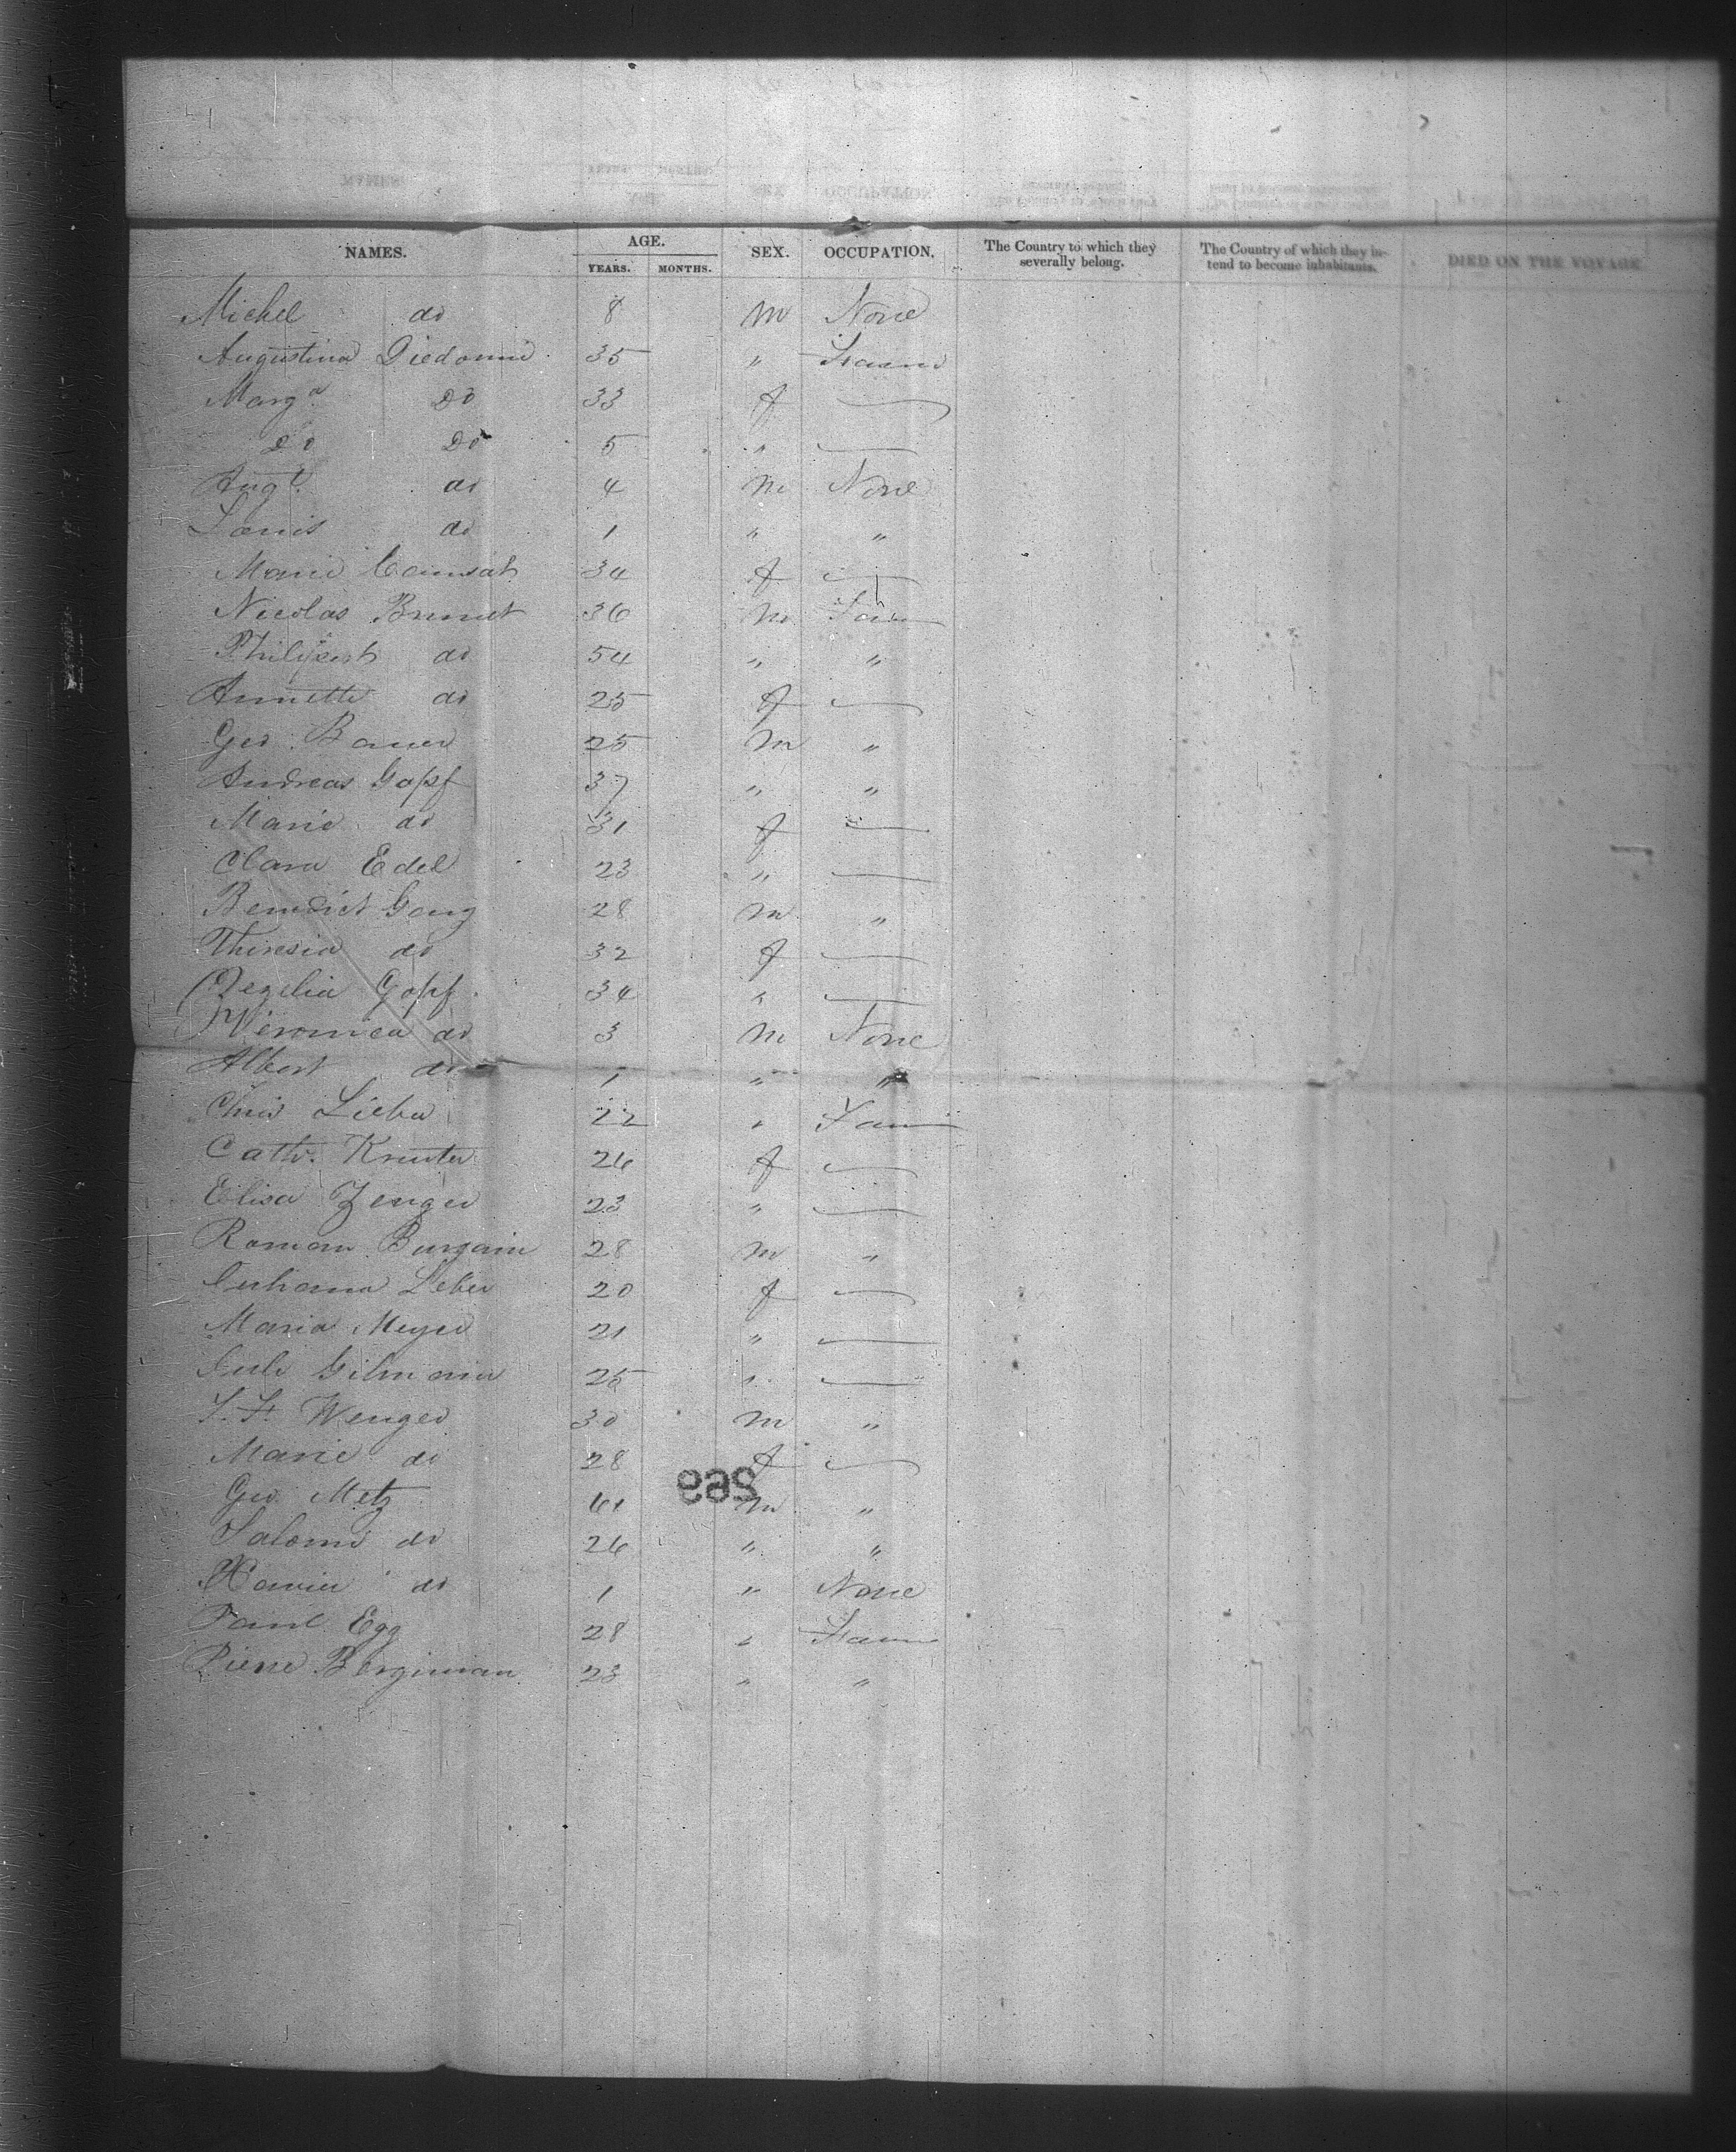 NAMES. AGE. YEARS. MONTHS. SEX. OCCUPATION. The Country to which they severally belong. The Country of which they intend to become inhabitants. DIED ON THE VOYAGE
Michel do 8 m None
Augustina Diedonné 35 " Farmr
Marga Do 33 f —
Do Do 5 " —
Augt. do 4 m None
Louis do 1 " "
Marie 34 f —
Nicolas Brunet 36 m Farm
do 54 " "
Annette do 25 f —
Geo Bauer 25 m "
Andreas Gopf 37 " "
Marie do 31 f —
Clara Edel 23 " —
Benedict Gang 28 m "
Theresia do 32 f —
Cezelia Gopf 34 " —
Veronica do 3 m None
Albert do 1 " "
Chris Lieber 22 " Farm
Cath. Kreuter 26 f —
Elisa Zenger 23 " —
Roman Burgain 28 m "
Leber 20 f —
Maria Meyer 21 " —
25 " —
Wenger 30 m "
Marie do 28 f —
Geo Metz 61 m "
Salome do 26 " "
Xavier do 1 " None
Paul Egg 28 " Farm
Pierre Bergiman 23 " "